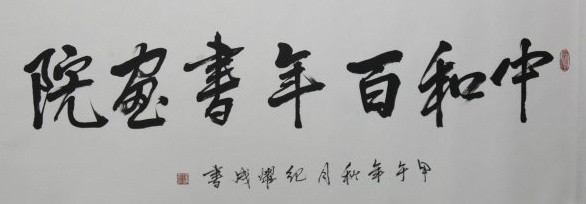 中和百年書畫院
甲午年秋月紀耀成書